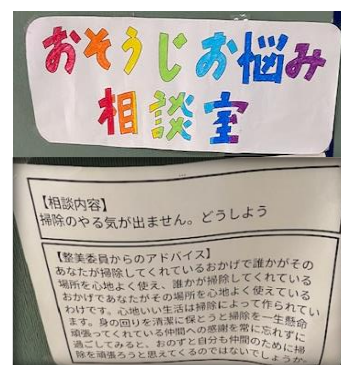 おそうじお悩み
相談室
【相談内容】
掃除のやる気が出ません。どうしよう
【整美委員からのアドバイス】
あなたが掃除してくれているおかげで誰かがその
場所を心地よく使え、誰かが掃除してくれている
おかげであなたがその場所を心地よく使えている
わけです。心地いい生活は掃除によって作られてい
ます。身の回りを清潔に保とうと掃除を一生懸命
頑張ってくれている仲間への感謝を常に忘れずに
過ごしてみると、おのずと自分も仲間のために掃
除を頑張ろうと思えてくるのではないでしょうか